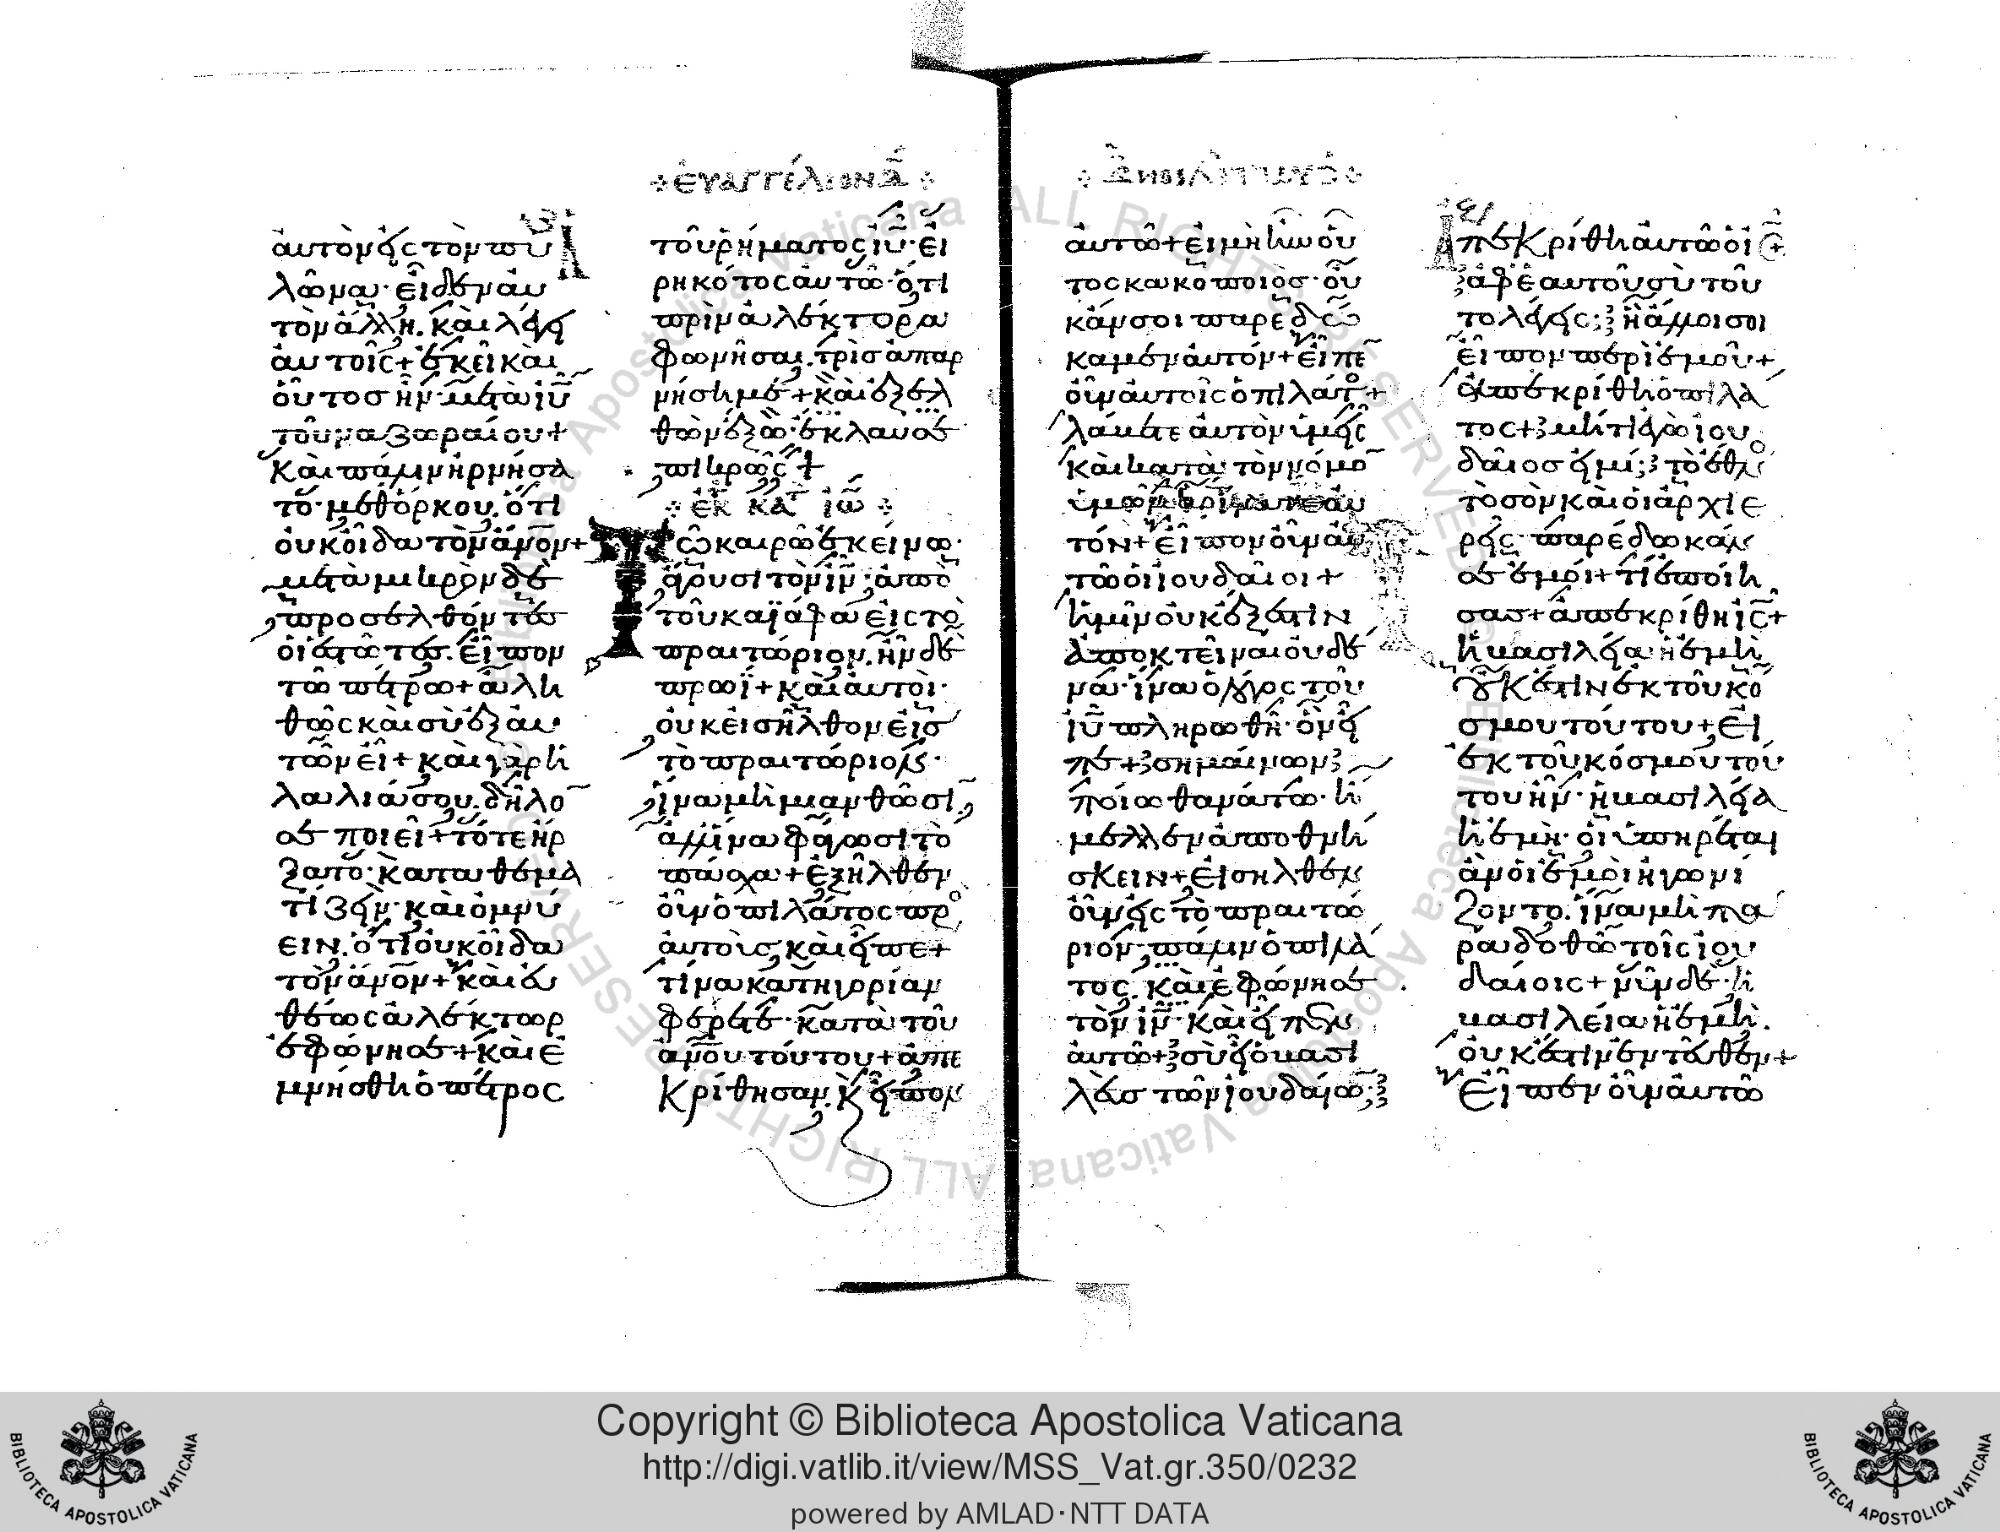 εὐαγγέλιον Α
αυτὸν εἰς τὸν πυ
λῶνα· εἶδεν αυ
τὸν ἄλλη. καὶ λέγει
αυτοῖς + ἐκεῖ καὶ
οὗτος ἦν μετὰ ἰῦ
τοῦ ναζωραίου +
Καὶ πάλιν ἠρνήσα
το· μεθόρκου. ὅτι
οὐκ οἶδα τὸν ἄνον +
μετὰ μικρὸν δὲ
προσελθόντες
οἱ ἑστῶτες. εἶπον
τῶ πέτρω + ἀλη
θῶς καὶ σὺ ἐξ αυ
τῶν εἶ + καὶ γὰρ ἡ
λαλιά σου. δῆλό
σε ποιεῖ + τότε ἤρ
ξατο· καταθεμα
τίζειν· καὶ ὀμνύ
ειν. ὅτι οὐκ οἶδα
τὸν ἄνον + καὶ εὐ
θέως ἀλέκτωρ
ἐφώνησε + καὶ ἐ
μνήσθη ὁ πέτρος
τοῦ ρήματος ἰῦ· εἰ
ρηκότος αυτῶ· ὅτι
πρὶν ἀλέκτορα
φωνῆσαι. τρὶς ἀπαρ
νήση με + καὶ ἐξελ
θὼν ἔξω· ἔκλαυσε
πικρῶς +
ἐκ κατ ἰω
Τῶ καιρῶ ἐκείνω·
ἄγουσι τὸν ἰν· ἀπὸ
τοῦ καϊάφα εἰς τὸ
πραιτώριον. ἦν δὲ
πρωΐ + καὶ αυτοὶ·
οὐκ εἰσῆλθον εἰς
τὸ πραιτώριον·
ἵνα μὴ μιανθῶσι,
ἀλλ ἵνα φάγωσι τὸ
πάσχα + ἐξῆλθεν
οὖν ὁ πιλάτος πρ
αυτοὺς, καὶ εἶπε +
τίνα κατηγορίαν
φέρετε· κατὰ τοῦ
ἀνου τούτου + ἀπε
κρίθησαν. κ εἶπον
αυτῶ + εἰ μὴ ἦν οὗ
τος κακοποιὸς· οὐ
κάν σοι παρεδώ
καμεν αυτόν + εἶπε
οὖν αυτοῖς ὁ πιλάτ +
λάβετε αυτὸν ὑμεῖς
καὶ κατὰ τὸν νόμο
ὑμῶν κρίνατε αυ
τόν + εἶπον οὖν αυ
τῶ οἱ ἰουδαῖοι +
ἡμῖν οὐκ ἔξεστιν
ἀποκτεῖναι οὐδέ
να· ἵνα ὁ λόγος τοῦ
ἰῦ πληρωθῆ· ὃν εἶ
πε + σημαίνων
ποίω θανάτω· ἤ
μελλεν ἀποθνή
σκειν + εἰσῆλθεν
οὖν εἰς τὸ πραιτώ
ριον, πάλιν ὁ πιλά
τος. καὶ ἐφώνησε
τὸν ἰν· καὶ εἶπεν
αυτῶ + σὺ εἶ ὁ βασι
λεὺς τῶν ἰουδαίω;
Ἀπεκρίθη αυτῶ ὁ ἰς +
ἀφ ἑαυτοῦ σὺ τοῦ
το λέγεις; ἢ ἄλλοι σοι
εἶπον περὶ ἐμοῦ +
ἀπεκρίθη ὁ πιλά
τος + μήτι ἐγὼ ἰου
δαῖός εἰμι; τὸ ἔθν
τὸ σὸν καὶ οἱ ἀρχιε
ρεῖς· παρέδωκάν
σε ἐμοί + τί ἐποίη
σας + ἀπεκρίθη ἰς +
ἡ βασιλεία ἡ ἐμὴ
οὐκ ἔστιν ἐκ τοῦ κό
σμου τούτου + εἰ
ἐκ τοῦ κόσμου τού
του ἦν· ἡ βασιλεία
ἡ ἐμὴ· οἱ ὑπηρέται
ἂν οἱ ἐμοὶ ἠγωνί
ζοντο. ἵνα μὴ πα
ραδοθῶ τοῖς ἰου
δαίοις + νῦν δὲ ἡ
βασιλεία ἡ ἐμὴ.
οὐκ ἔστιν ἐντεῦθεν +
Εἶπεν οὖν αυτῶ
Copyright © Biblioteca Apostolica Vaticana
http://digi.vatlib.it/view/MSS_Vat.gr.350/0232
powered by AMLAD·NTT DATA
BIBLIOTECA APOSTOLICA VATICANA
BIBLIOTECA APOSTOLICA VATICANA